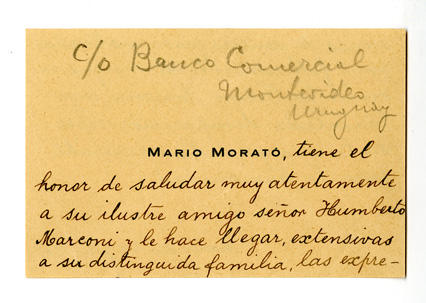 c/o Banco Comercial
Montevideo
Uruguay
MARIO MORATÓ, tiene el
honor de saludar muy atentamente
a su ilustre amigo señor Humberto
Marconi y le hace llegar, extensivas
a su distinguida familia, las expre-